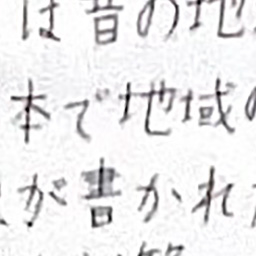 は昔の地
本で地域の
が書かれた